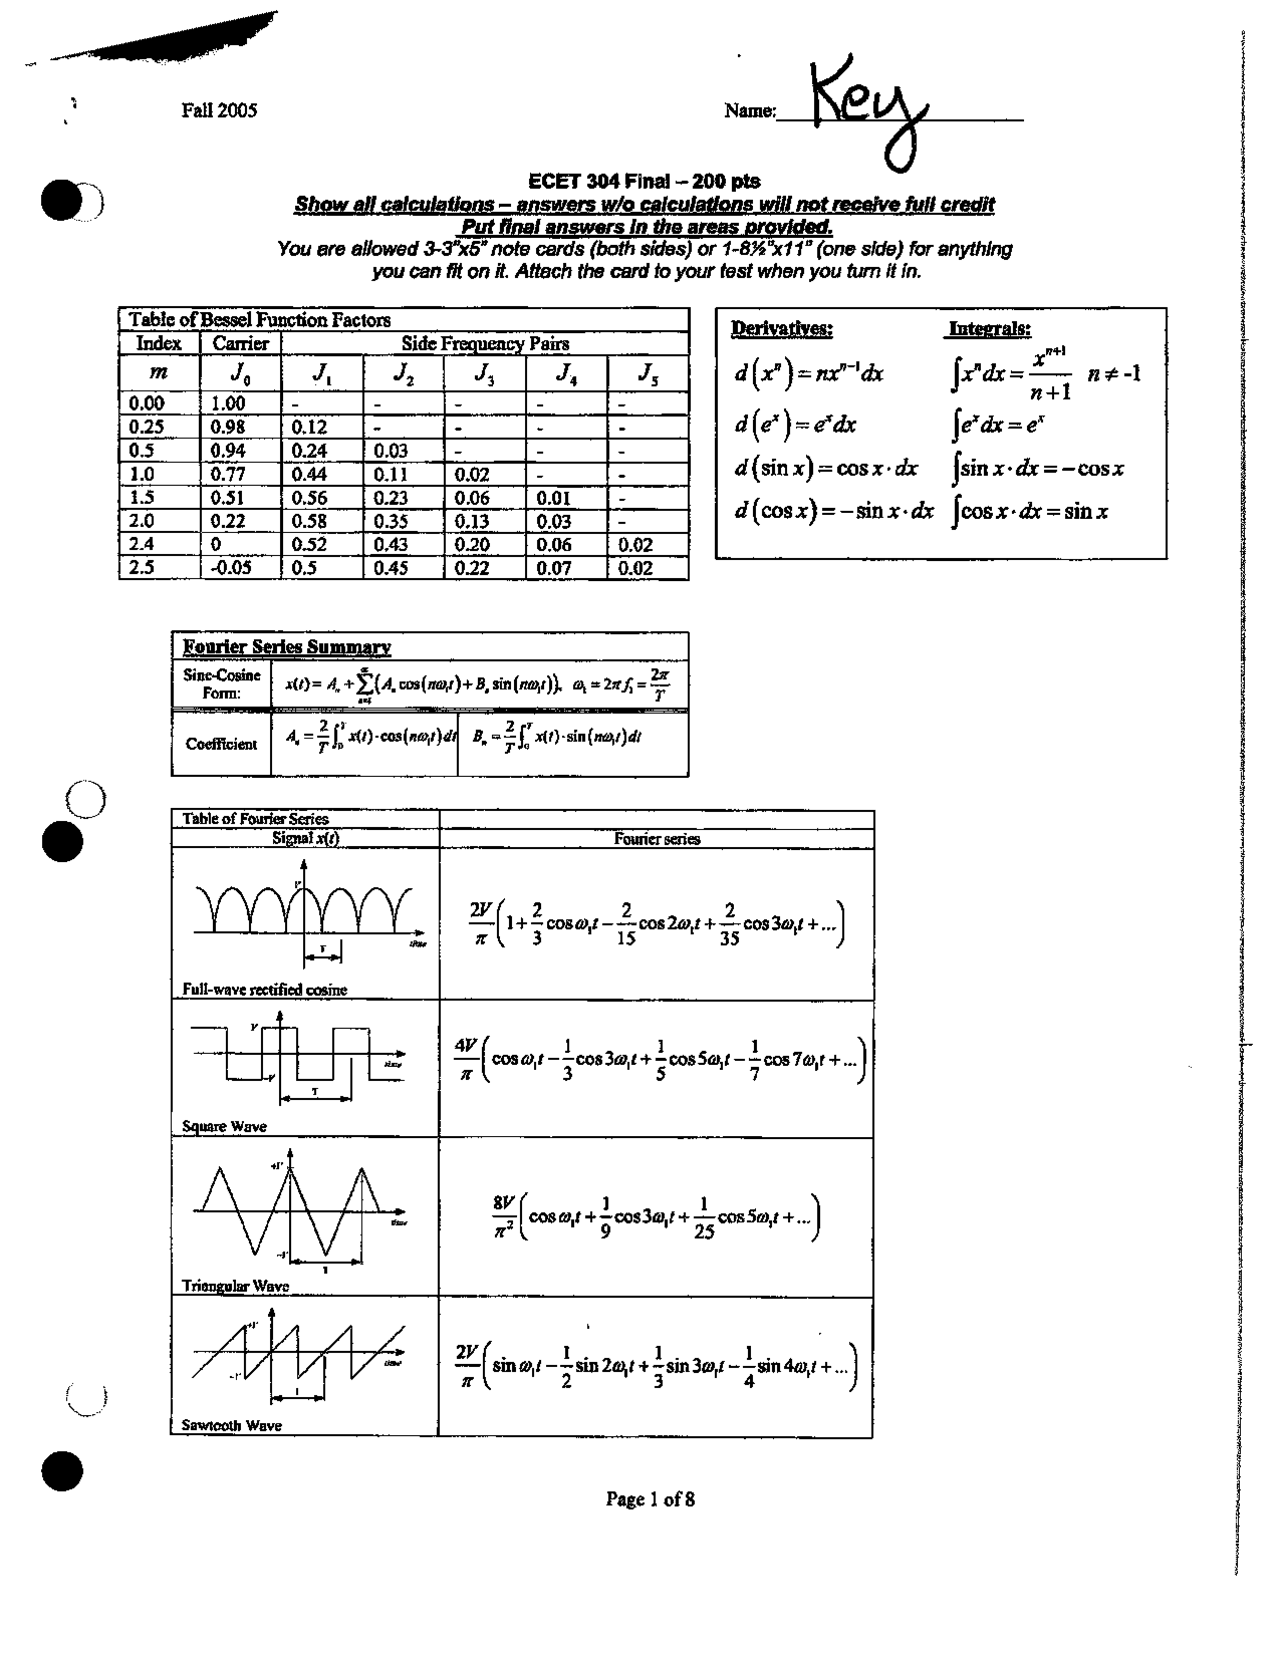 Fall 2005
Name: Key
ECET 304 Final – 200 pts
Show all calculations – answers w/o calculations will not receive full credit
Put final answers in the areas provided.
You are allowed 3-3"x5" note cards (both sides) or 1-8½"x11" (one side) for anything
you can fit on it. Attach the card to your test when you turn it in.
Table of Bessel Function Factors
Index Carrier Side Frequency Pairs
m J₀ J₁ J₂ J₃ J₄ J₅
0.00 1.00 - - - - -
0.25 0.98 0.12 - - - -
0.5 0.94 0.24 0.03 - - -
1.0 0.77 0.44 0.11 0.02 - -
1.5 0.51 0.56 0.23 0.06 0.01 -
2.0 0.22 0.58 0.35 0.13 0.03 -
2.4 0 0.52 0.43 0.20 0.06 0.02
2.5 -0.05 0.5 0.45 0.22 0.07 0.02
Derivatives: Integrals:
d(xⁿ) = nxⁿ⁻¹dx ∫xⁿdx = xⁿ⁺¹/(n+1) n ≠ -1
d(eˣ) = eˣdx ∫eˣdx = eˣ
d(sin x) = cos x · dx ∫sin x · dx = −cos x
d(cos x) = −sin x · dx ∫cos x · dx = sin x
Fourier Series Summary
Sine-Cosine Form: x(t) = Aₒ + ∑(Aₙ cos(nω₁t) + Bₙ sin(nω₁t)), ω₁ = 2πf₁ = 2π/T
Coefficient Aₙ = 2/T ∫₀ᵀ x(t)·cos(nω₁t)dt Bₙ = 2/T ∫₀ᵀ x(t)·sin(nω₁t)dt
Table of Fourier Series
Signal x(t) Fourier series
V
time
T
2V/π (1 + 2/3 cos ω₁t − 2/15 cos 2ω₁t + 2/35 cos 3ω₁t + ...)
Full-wave rectified cosine
V
time
-V
T
4V/π (cos ω₁t − 1/3 cos 3ω₁t + 1/5 cos 5ω₁t − 1/7 cos 7ω₁t + ...)
Square Wave
+V
time
-V
T
8V/π² (cos ω₁t + 1/9 cos 3ω₁t + 1/25 cos 5ω₁t + ...)
Triangular Wave
+V
time
-V
T
2V/π (sin ω₁t − 1/2 sin 2ω₁t + 1/3 sin 3ω₁t − 1/4 sin 4ω₁t + ...)
Sawtooth Wave
Page 1 of 8